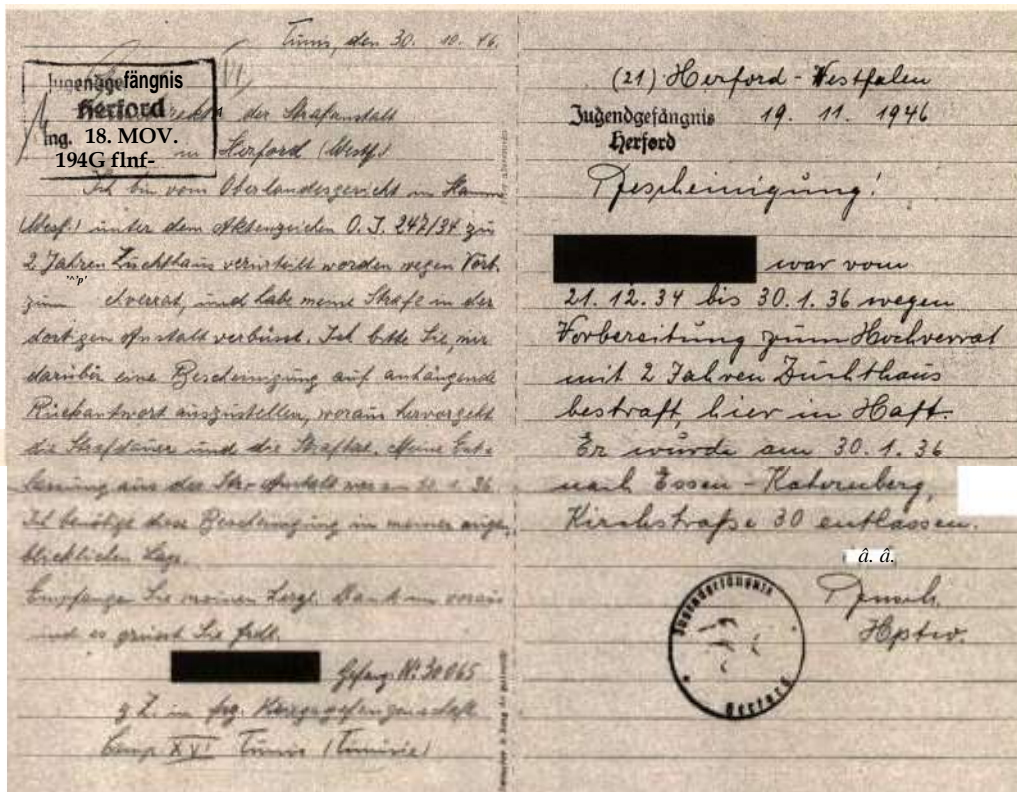 Tunis, den 30. 10. 46.
Jugendgefängnis
Herford
Ing. 18. MOV.
194G flnf-
der Strafanstalt
in Herford (Westf.)
Ich bin vom Oberlandesgericht in Hamm
(Westf.) unter dem Aktenzeichen O. J. 247/34 zu
2 Jahren Zuchthaus verurteilt worden wegen Vorb.
zum dverrat, und habe meine Strafe in der
dortigen Anstalt verbüsst. Ich bitte Sie, mir
darüber eine Bescheinigung auf anhängende
Rückantwort auszustellen, woraus hervorgeht
die Strafdauer und die Straftat. Meine Ent-
lassung aus der Anstalt war am 30. 1. 36.
Ich benötige diese Bescheinigung in meiner augen-
blicklichen Lage.
Empfangen Sie meinen herzl. Dank im voraus
und es grüsst Sie frdl.
Gefang. Nr. 30065
z. Z. in frz. Kriegsgefangenschaft
Camp XVI Tunis (Tunisie)
(21) Herford - Westfalen
Jugendgefängnis 19. 11. 1946
Herford
Bescheinigung!
war vom
21. 12. 34 bis 30. 1. 36 wegen
Vorbereitung zum Hochverrat
mit 2 Jahren Zuchthaus
bestraft, hier in Haft.
Er wurde am 30. 1. 36
nach Essen - Katernberg,
Kirchstraße 30 entlassen.
â. â.
Hptw.
Jugendgefängnis
Herford